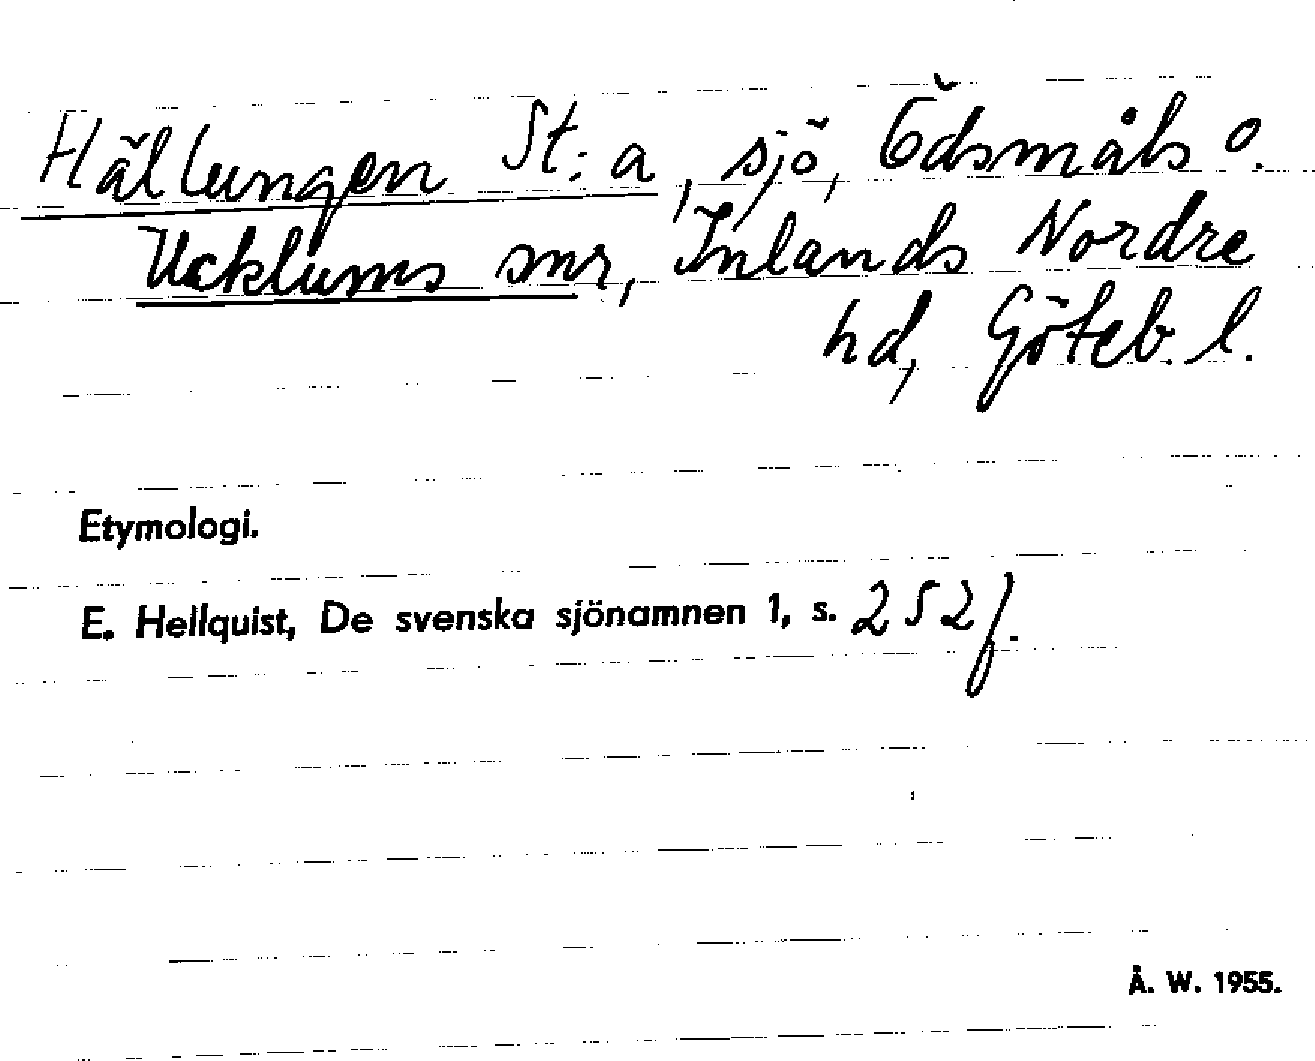 Hällungen St:a, sjö, Ödsmåls o.
Ucklums snr, Inlands Nordre
hd, Göteb. l.
Etymologi.
E. Hellquist, De svenska sjönamnen 1, s. 252 f.
Å. W. 1955.